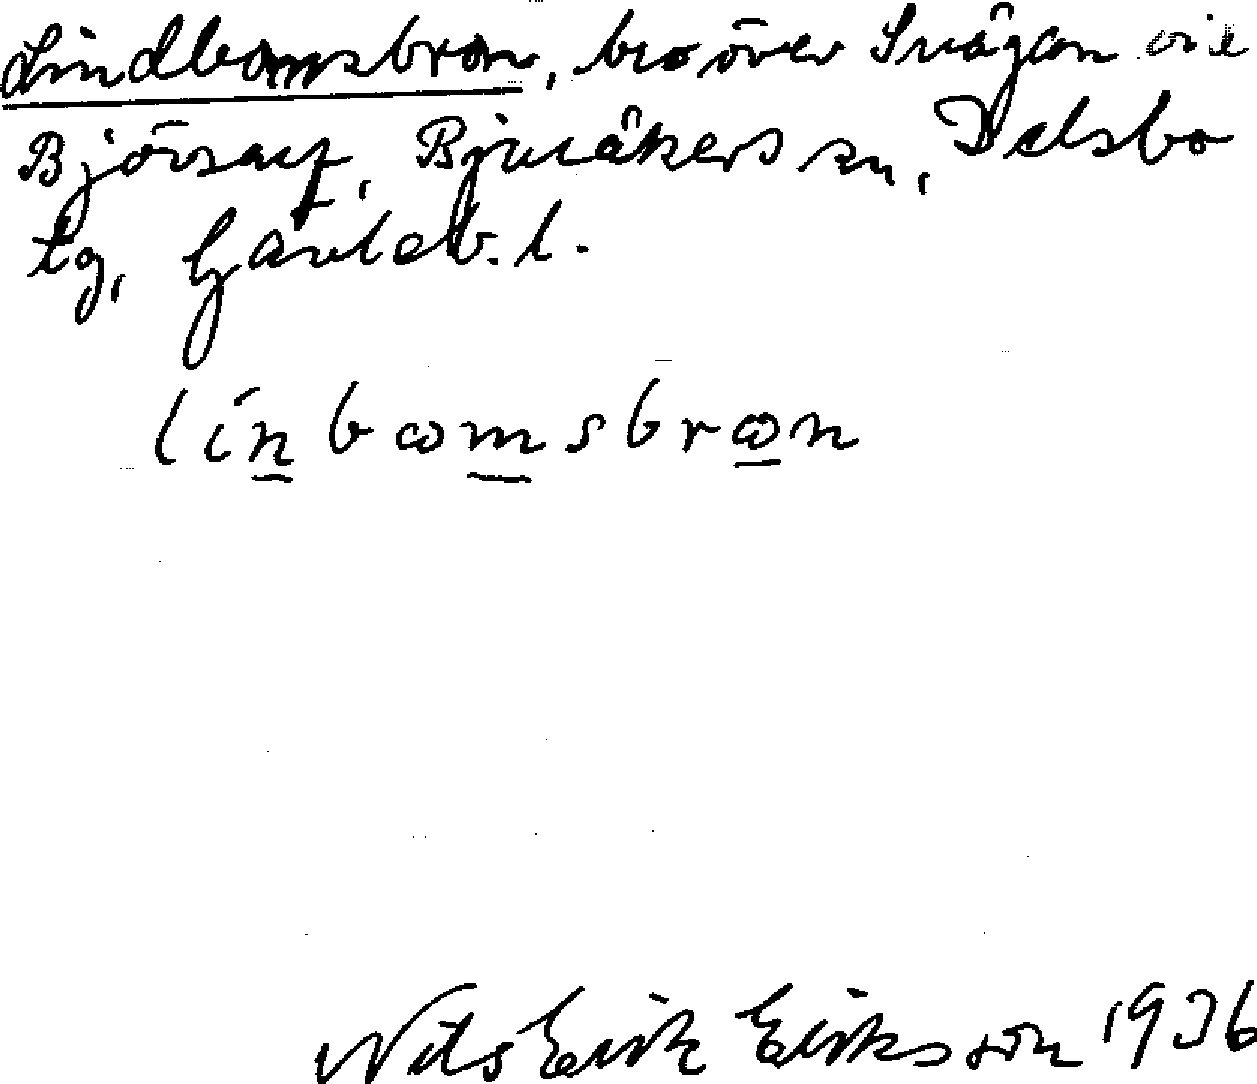 Lindbomsbron, bro över Svågan vid
Björsarf, Bjuråkers sn, Delsbo
tg, Gävleb. l.
linbomsbron
Nils Erik Eriksson 1936